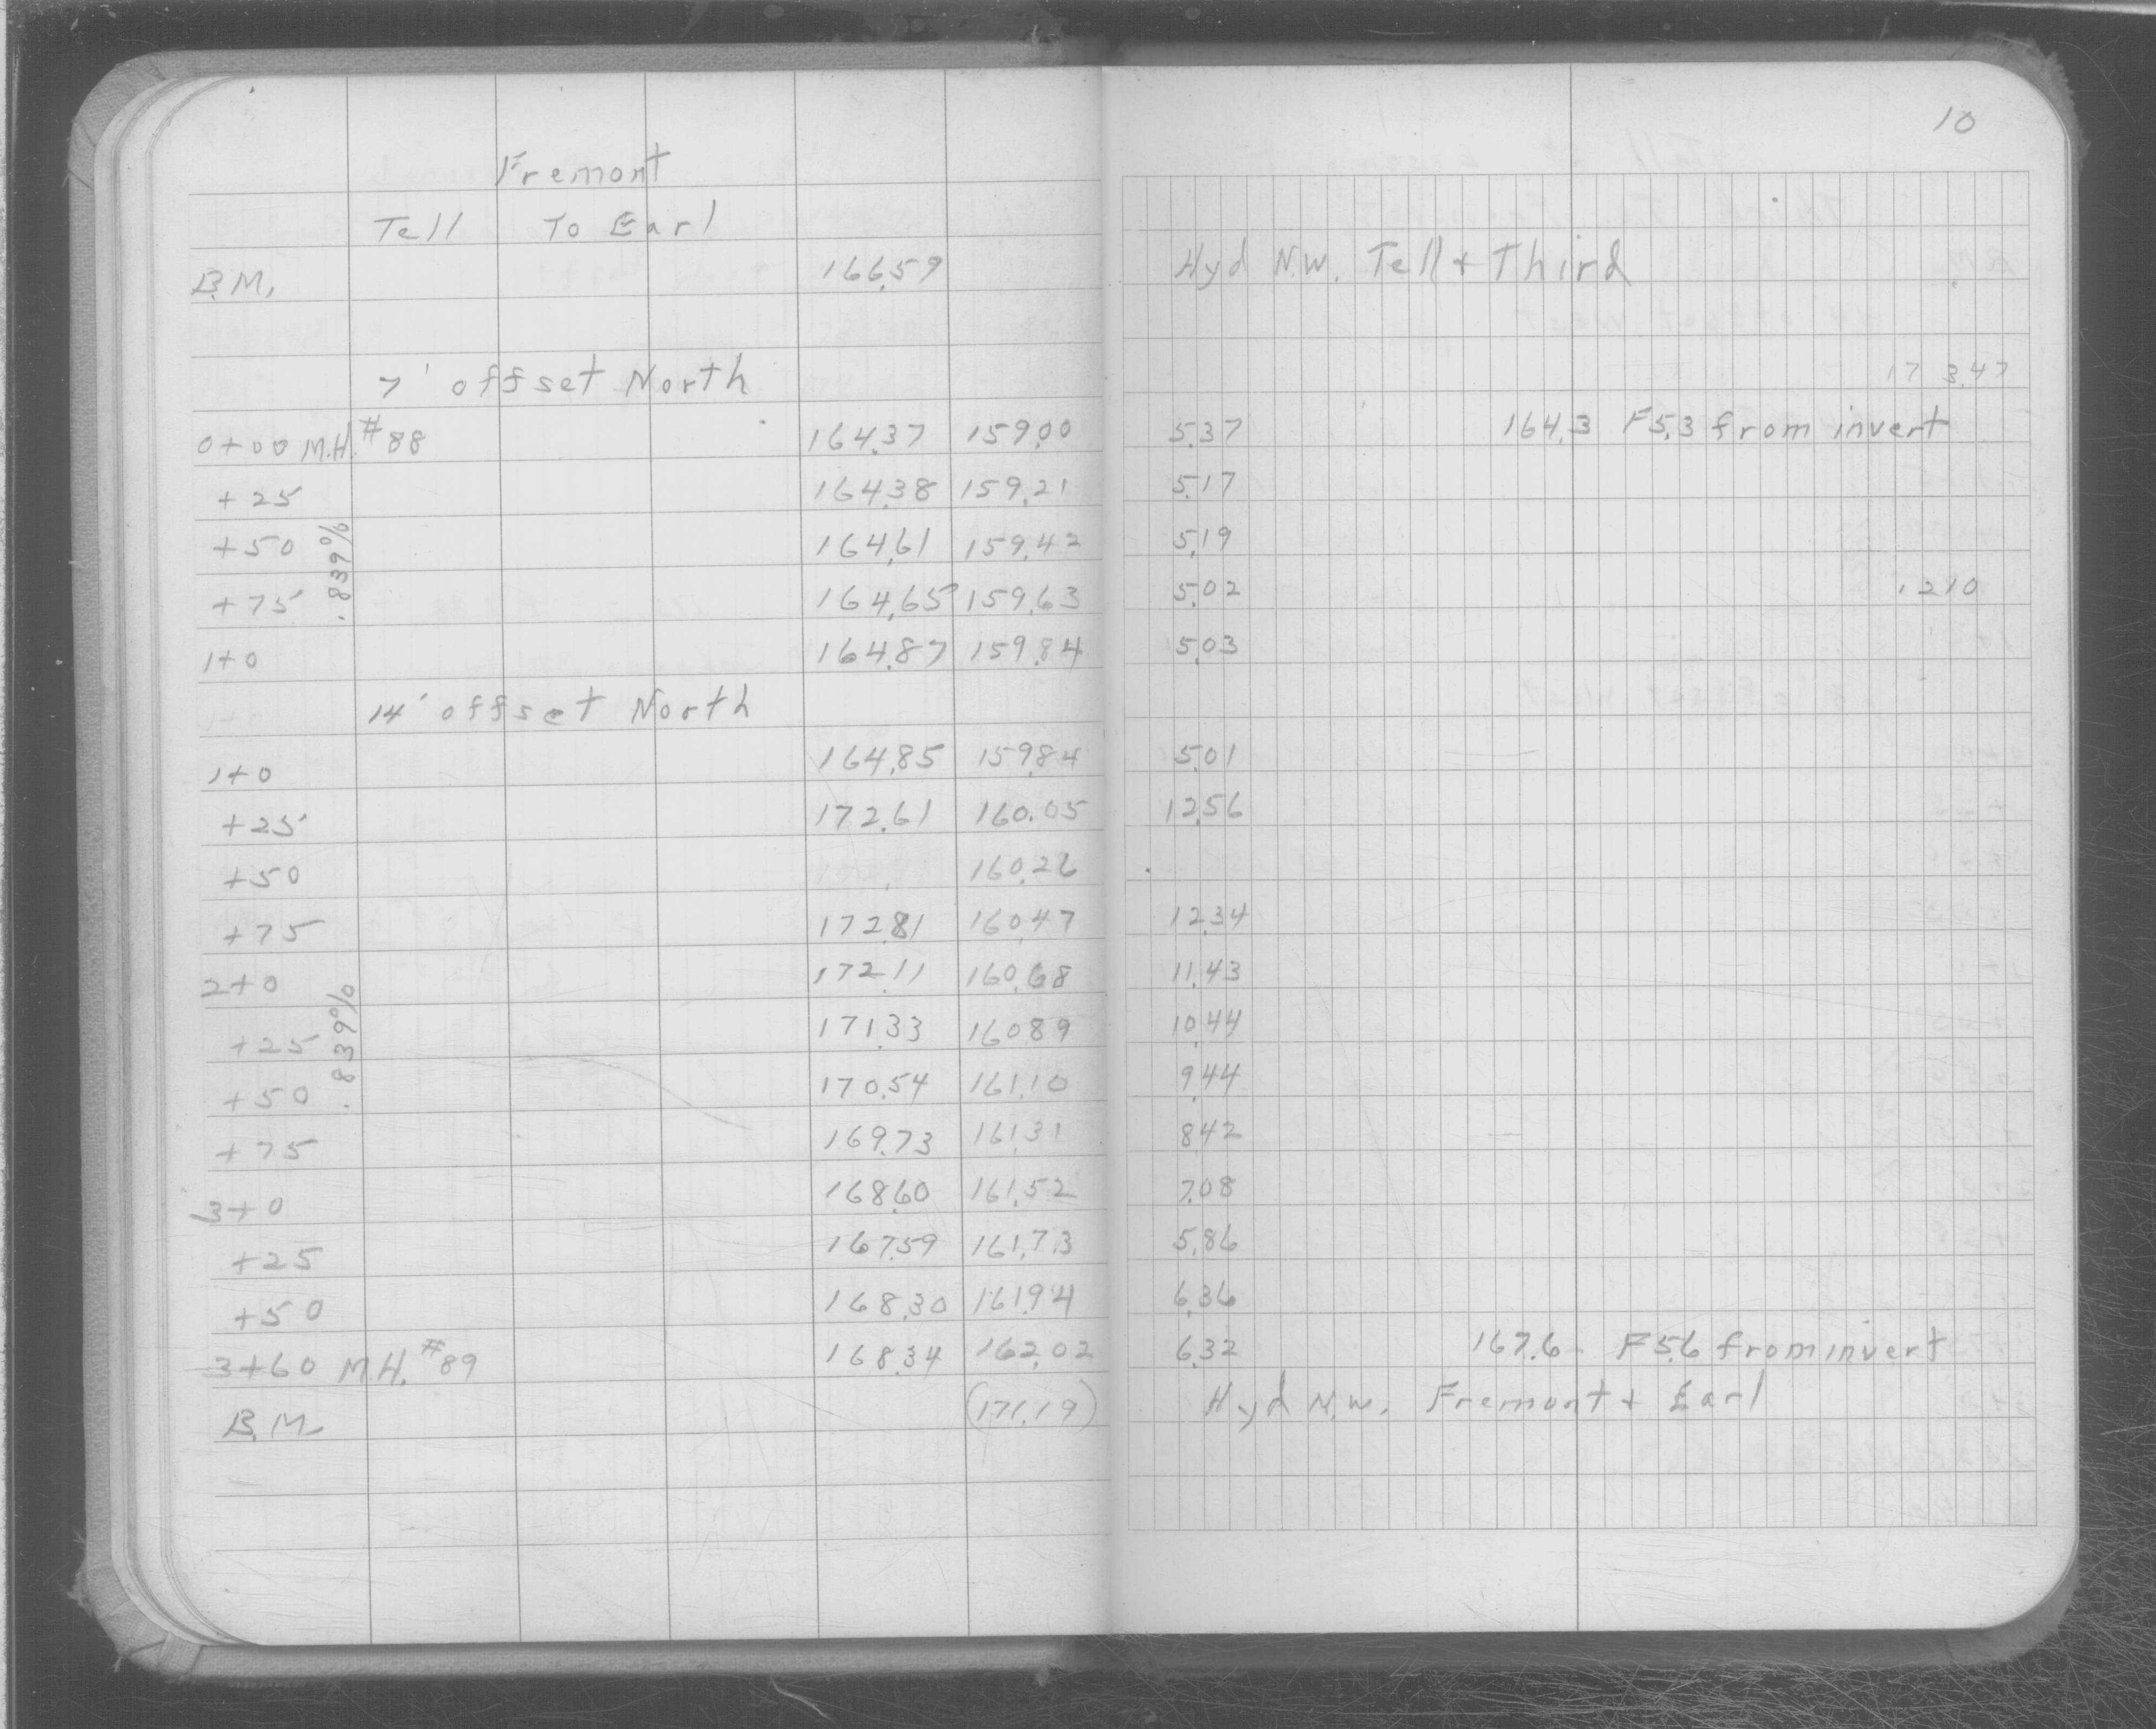 10
Fremont
Tell To Earl
B.M. 166.59 Hyd N.W. Tell + Third
173.47
7' offset North
0+00 M.H. #88 164.37 159.00 5.37 164.3 F5.3 from invert
+25 164.38 159.21 5.17
+50 164.61 159.42 5.19
.839%
+75 164.65 159.63 5.02 .210
1+0 164.87 159.84 5.03
14' offset North
1+0 164.85 159.84 5.01
+25 172.61 160.05 12.56
+50 160.26
+75 172.81 160.47 12.34
2+0 172.11 160.68 11.43
+25 171.33 160.89 10.44
.839%
+50 170.54 161.10 9.44
+75 169.73 161.31 8.42
3+0 168.60 161.52 7.08
+25 167.59 161.73 5.86
+50 168.30 161.94 6.36
3+60 M.H. #89 168.34 162.02 6.32 167.6 F5.6 from invert
B.M. (171.19) Hyd N.W. Fremont + Earl